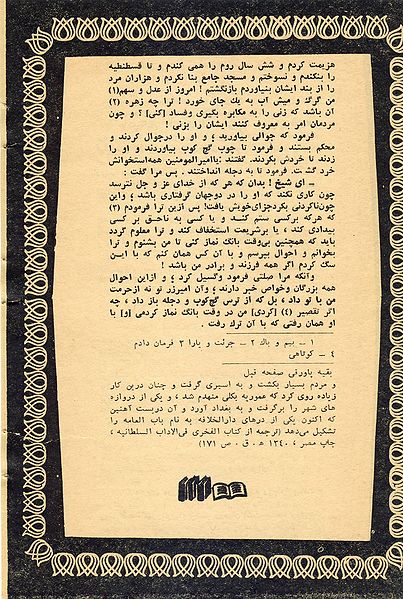 هزیمت کردم و شش سال روم را همی کندم و تا قسطنطیه
را بنکندم و نسوختم و مسجد جامع بنا نکردم و هزاران مرد
را از بند ایشان بنیاوردم بازنگشتم ! امروز از عدل و سهم(۱)
من گرگ و میش آب به یك جای خورد ! ترا چه زهره (۲)
آن باشد که زنی را به مکابره بگیری وفساد [کنی] ؟ و چون
مردمان امر به معروف کنند ایشان را بزنی !
فرمود که جوالی بیاورید ؛ و او را درجوال کردند و
محکم ببستند و فرمود تا چوب گچ کوب بیاوردند و او را
زدند تا خردش بکردند. گفتند :یاامیرالمومنین همه‌استخوانش
خرد گشت. فرمود تا به دجله انداختند . پس مرا گفت :
ـ ای شیخ ! بدان که هر که از خدای عز و جل نترسد
چون کاری نکند که او را در دوجهان گرفتاری باشد ؛ واین
چون‌ناکردنی بکردجزای‌خویش یافت! پس ازین ترا فرمودم (۳)
که هرکه برکسی ستم کنند و یا کسی به ناحق بر کسی
بیدادی کند ، یا برشریعت استخفاف کند و ترا معلوم گردد
باید که همچنین بی‌وقت بانگ نماز کنی تا من بشنوم و ترا
بخوانم و احوال بپرسم و با آن کس همان کنم که با این
سگ کردم اگر همه فرزند و برادر من باشد !
وآنکه مرا صلتی فرمود وگسیل کرد ، و ازاین احوال
همه بزرگان وخواص خبر دارند ؛ وآن امیرزر تو نه ازحرمت
من با تو داد ، بل که از ترس گچ‌کوب و دجله باز داد ، چه
اگر تقصیر (۴) [کردی] من در وقت بانگ نماز کردمی [و] با
او همان رفتی که با آن ترك رفت .
۱ ـ بیم و باك ۲ ـ جرئت و یارا ۳ فرمان دادم
۴ ـ کوتاهی
بقیه پاورقی صفحه قبل
و مردم بسیار بکشت و به اسیری گرفت و چنان درین کار
زیاده روی کرد که عموریه بکلی منهدم شد ، و یکی از دروازه
های شهر را برگرفت و به بغداد آورد و آن دربست آهنین
که اکنون یکی از درهای دارالخلافه به نام باب العامه را
تشکیل می‌دهد (ترجمه از کتاب الفخری فی‌الاداب السلطانیه ،
چاپ مصر ، ۱۳۴۰ ه . ق . ص ۱۷۱)